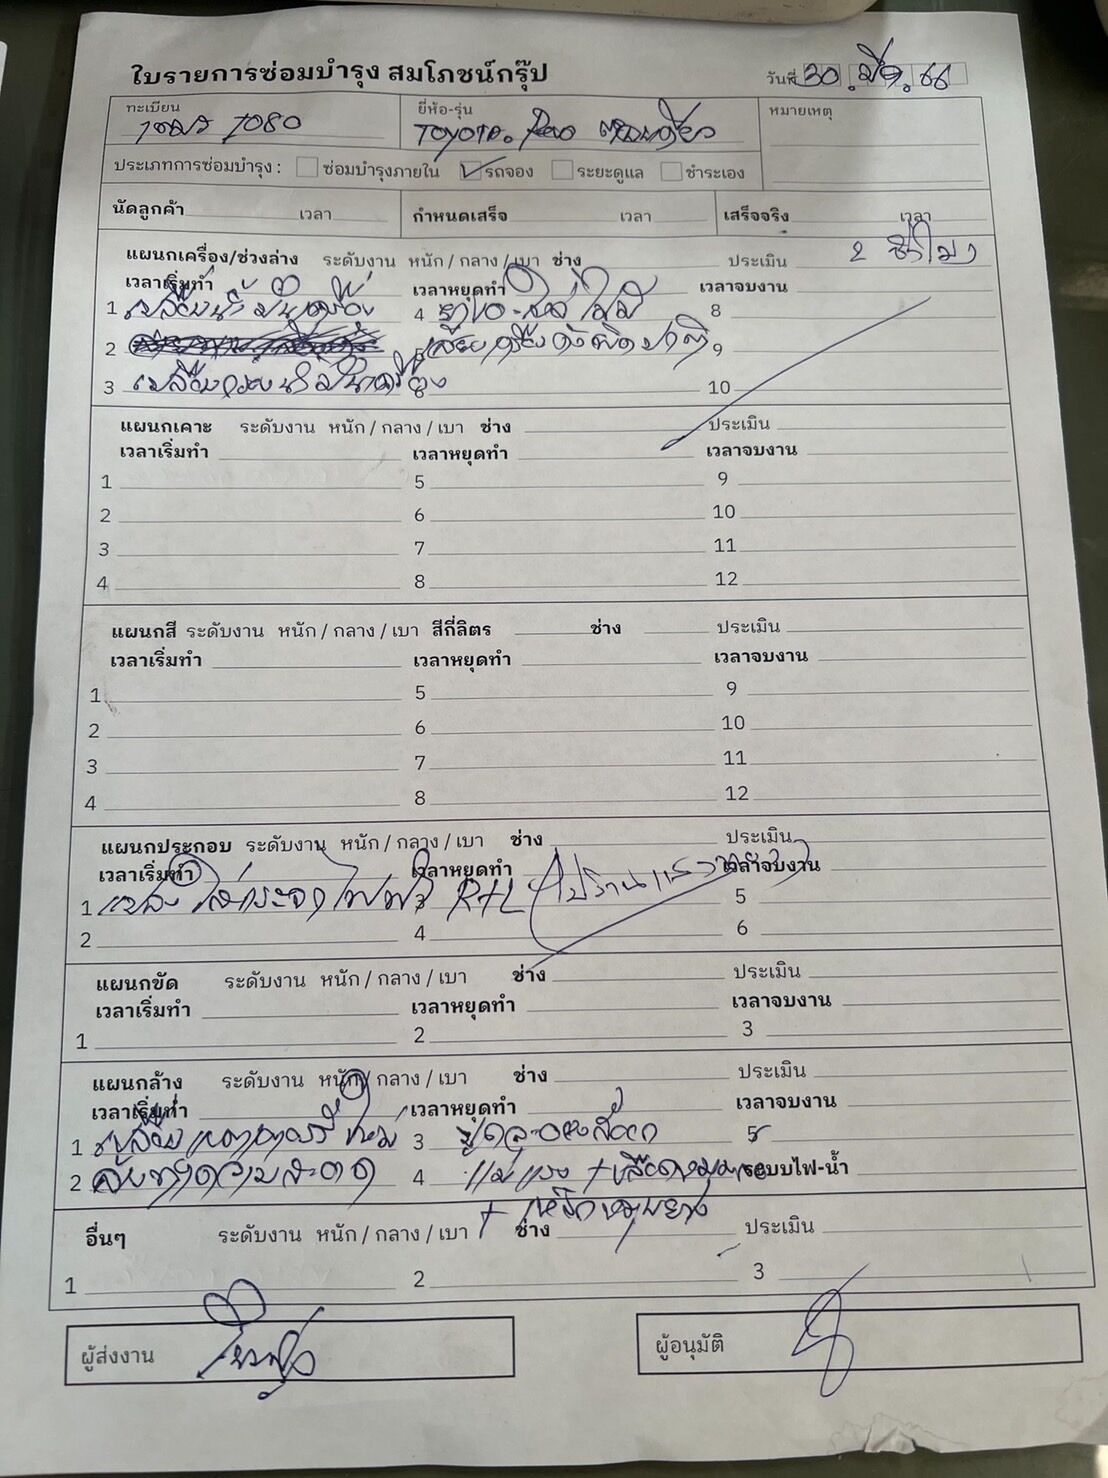 ใบรายการซ่อมบำรุง สมโภชน์กรุ๊ป
วันที่ 30 . มีค . 66
ทะเบียน ยี่ห้อ-รุ่น หมายเหตุ
1080 TOYOTA. Revo ตอนเดียว
ประเภทการซ่อมบำรุง : ซ่อมบำรุงภายใน รถจอง ระยะดูแล ชำระเอง
นัดลูกค้า เวลา กำหนดเสร็จ เวลา เสร็จจริง เวลา
แผนกเครื่อง/ช่วงล่าง ระดับงาน หนัก / กลาง / เบา ช่าง ประเมิน 2 ชั่วโมง
เวลาเริ่มทำ เวลาหยุดทำ เวลาจบงาน
1 เปลี่ยนน้ำมันเครื่อง 4 8
2 5 เสียงเครื่องดังผิดปกติ 9
3 เปลี่ยนกรองน้ำมันเครื่อง 10
แผนกเคาะ ระดับงาน หนัก / กลาง / เบา ช่าง ประเมิน
เวลาเริ่มทำ เวลาหยุดทำ เวลาจบงาน
1 5 9
2 6 10
3 7 11
4 8 12
แผนกสี ระดับงาน หนัก / กลาง / เบา สีกี่ลิตร ช่าง ประเมิน
เวลาเริ่มทำ เวลาหยุดทำ เวลาจบงาน
1 5 9
2 6 10
3 7 11
4 8 12
แผนกประกอบ ระดับงาน หนัก / กลาง / เบา ช่าง ประเมิน
เวลาเริ่มทำ เวลาหยุดทำ เวลาจบงาน
1 แปลงใส่กระจกไฟฟ้า R+L 5
2 4 6
แผนกขัด ระดับงาน หนัก / กลาง / เบา ช่าง ประเมิน
เวลาเริ่มทำ เวลาหยุดทำ เวลาจบงาน
1 2 3
แผนกล้าง ระดับงาน หนัก / กลาง / เบา ช่าง ประเมิน
เวลาเริ่มทำ เวลาหยุดทำ เวลาจบงาน
1 เปลี่ยนแบตเตอรี่ใหม่ 3 5
2 ล้างทำความสะอาด 4 แม่แรง ระบบไฟ-น้ำ
อื่นๆ ระดับงาน หนัก / กลาง / เบา ช่าง ประเมิน
1 2 3
ผู้ส่งงาน ผู้อนุมัติ